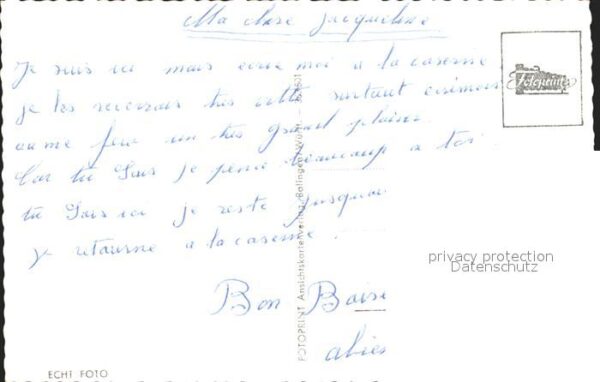 Ma chère Jacqueline
Je suis ici mais écrie moi a la caserne
je les recevrais très vite surtout
me un très grand plaisir
Car tu sais je pense beaucoup a toi
tu sais ici je reste jusquau
je retourne a la caserne.
Bon Baise
FOTOPRINT Ansichtskartenverlag, Balingen/Württ.
Fotoprint
privacy protection
Datenschutz
ECHT FOTO